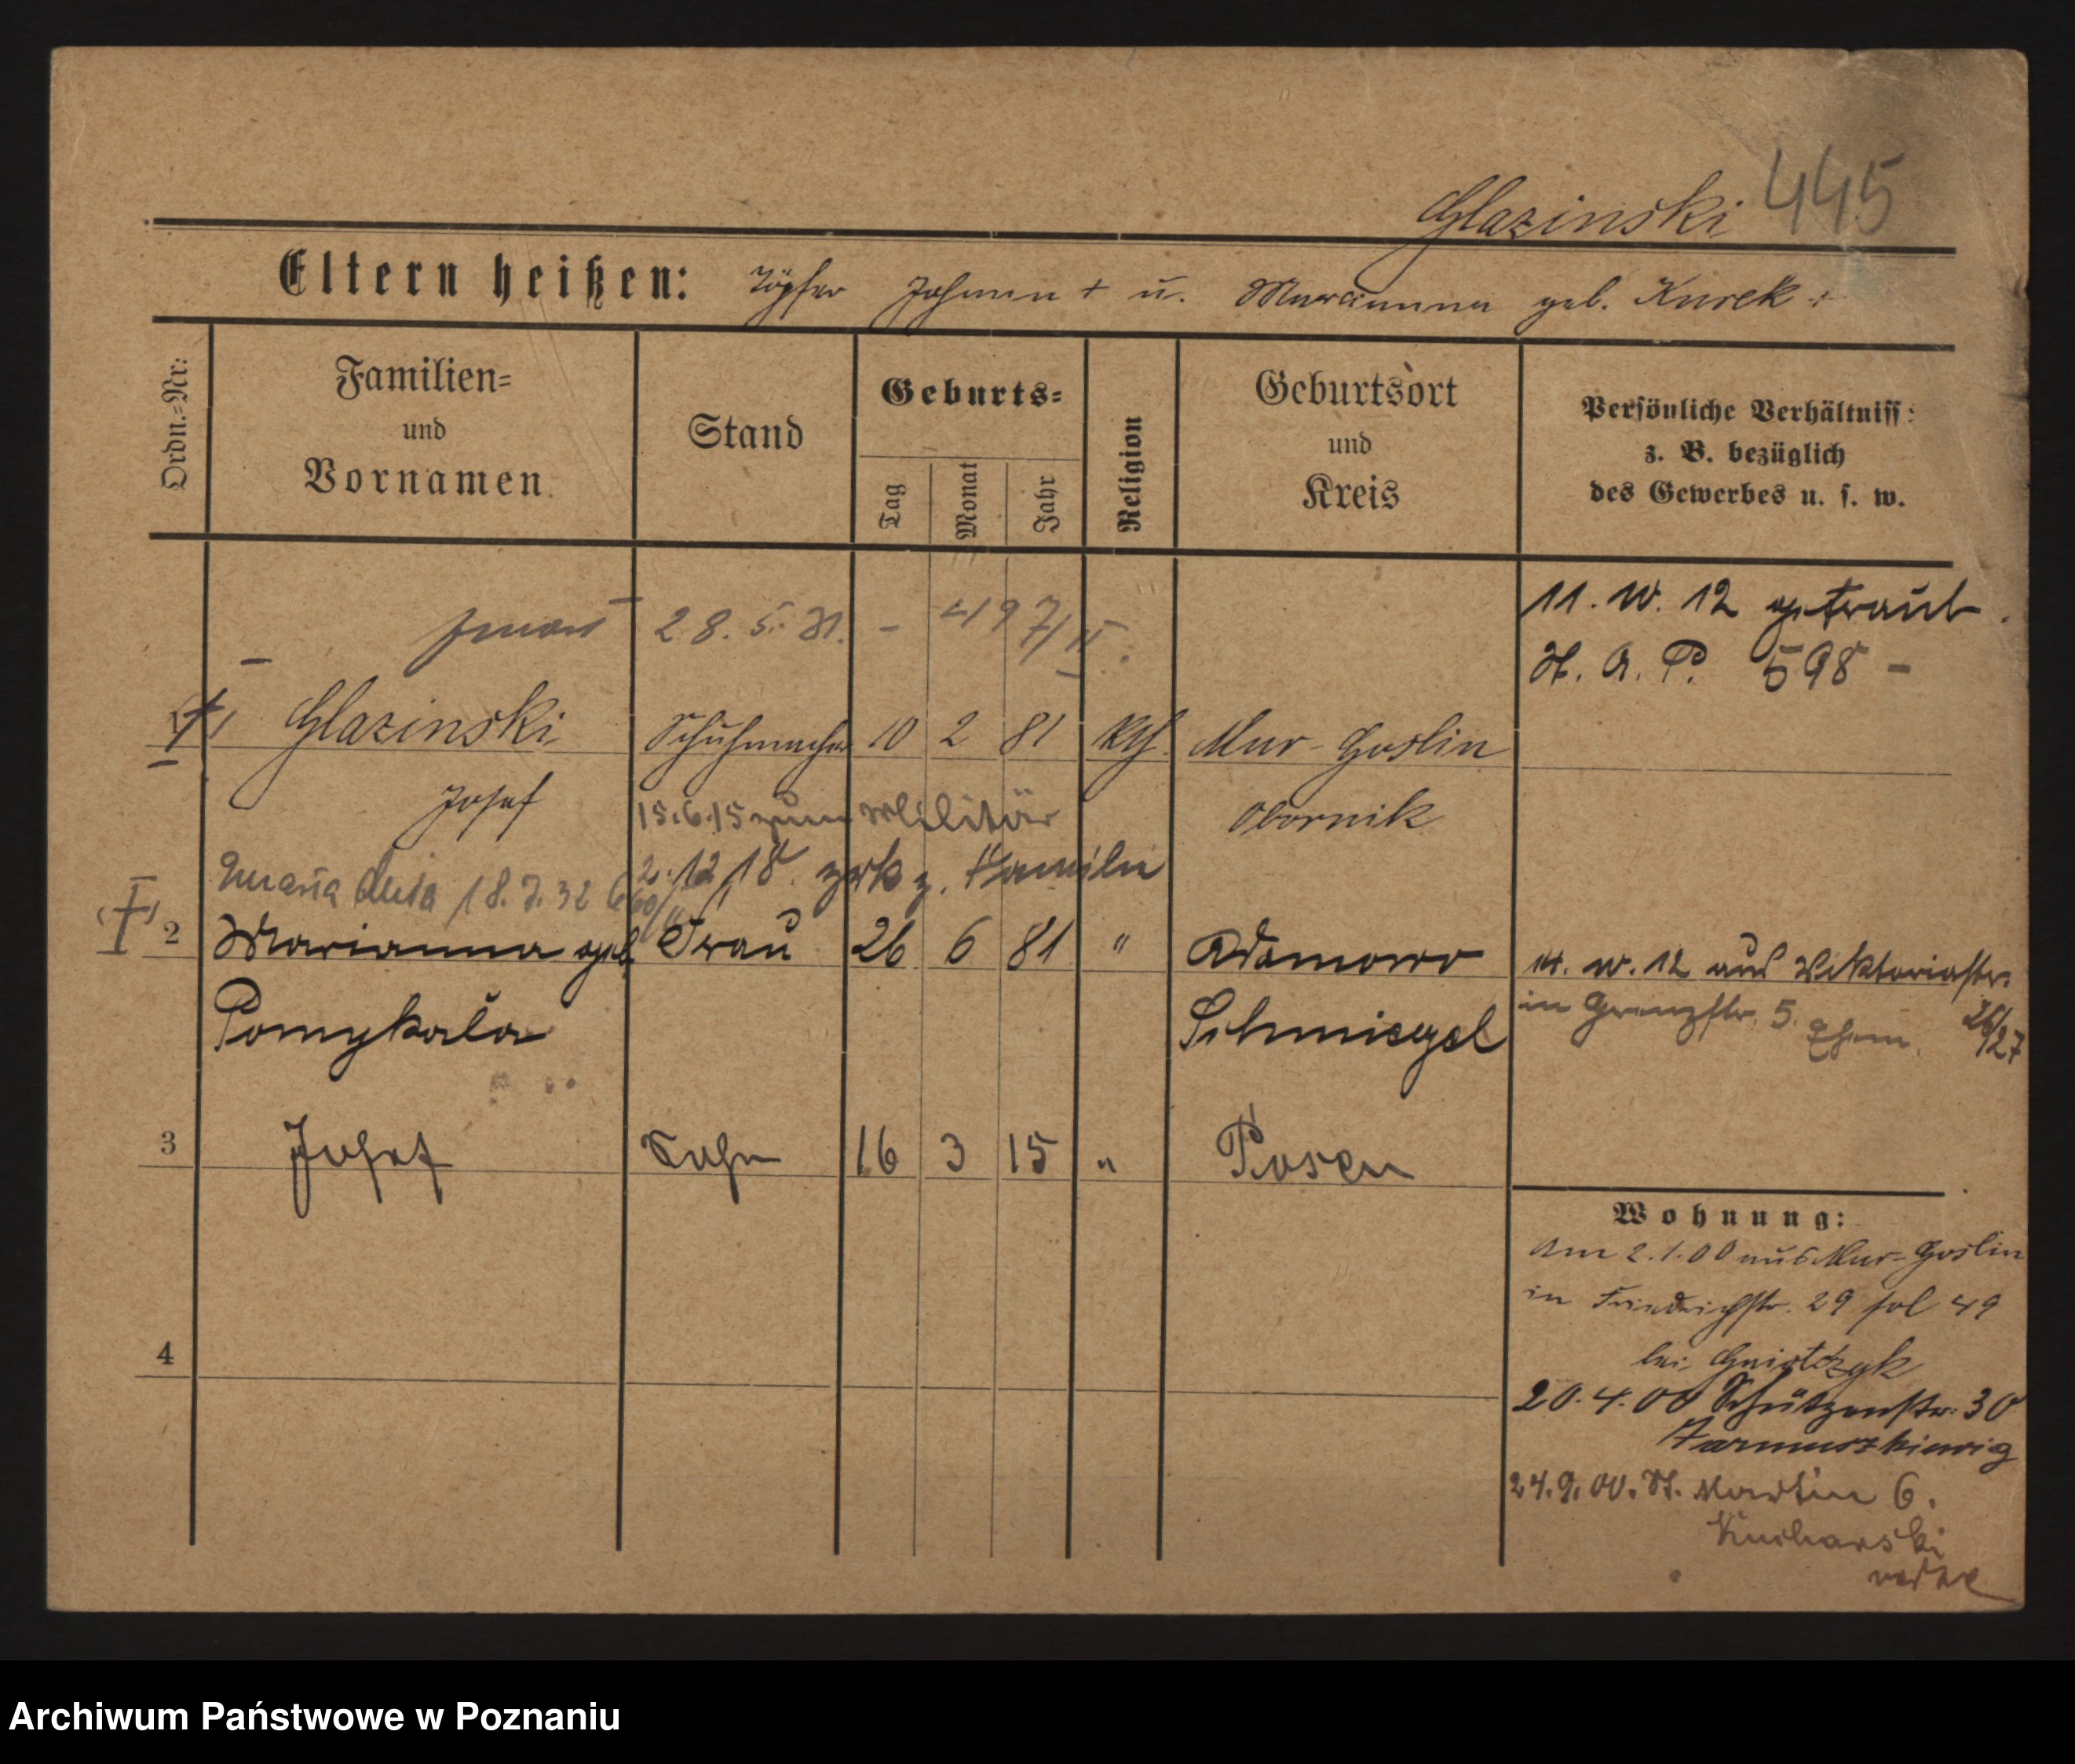 Glazinski 445
Eltern heißen: Töpfer Johann + u. Marianna geb. Kurek +
Ordn.=Nr:
Familien=
und
Vornamen
Stand
Geburts=
Tag
Monat
Jahr
Religion
Geburtsort
und
Kreis
Persönliche Verhältniss:
z. B. bezüglich
des Gewerbes u. s. w.
zmarł 28.5.31. - 497/II.
11. IV. 12 getraut
H. A. P. 598 -
1 Glazinski Schuhmacher 10 2 81 kth. Mur-Goslin
Josef 15.6.15 zum Militär Obornik
2.12.18. zrk z. Familie
zmarła dnia 18.7.32 660/II
2 Marianna geb. Frau 26 6 81 " Adamowo
Pomykała Schmiegel
14. IV. 12 aus Viktoriastr.
in Grenzstr. 5. Ehem. 26/27
3 Josef Sohn 16 3 15 " Posen
4
Wohnung:
Am 2.1.00 aus Mur-Goslin
in Friedrichstr. 29 fol 49
bei
20.4.00 Schützenstr. 30
24.9.00. St. Martin 6.
Kucharski
Archiwum Państwowe w Poznaniu